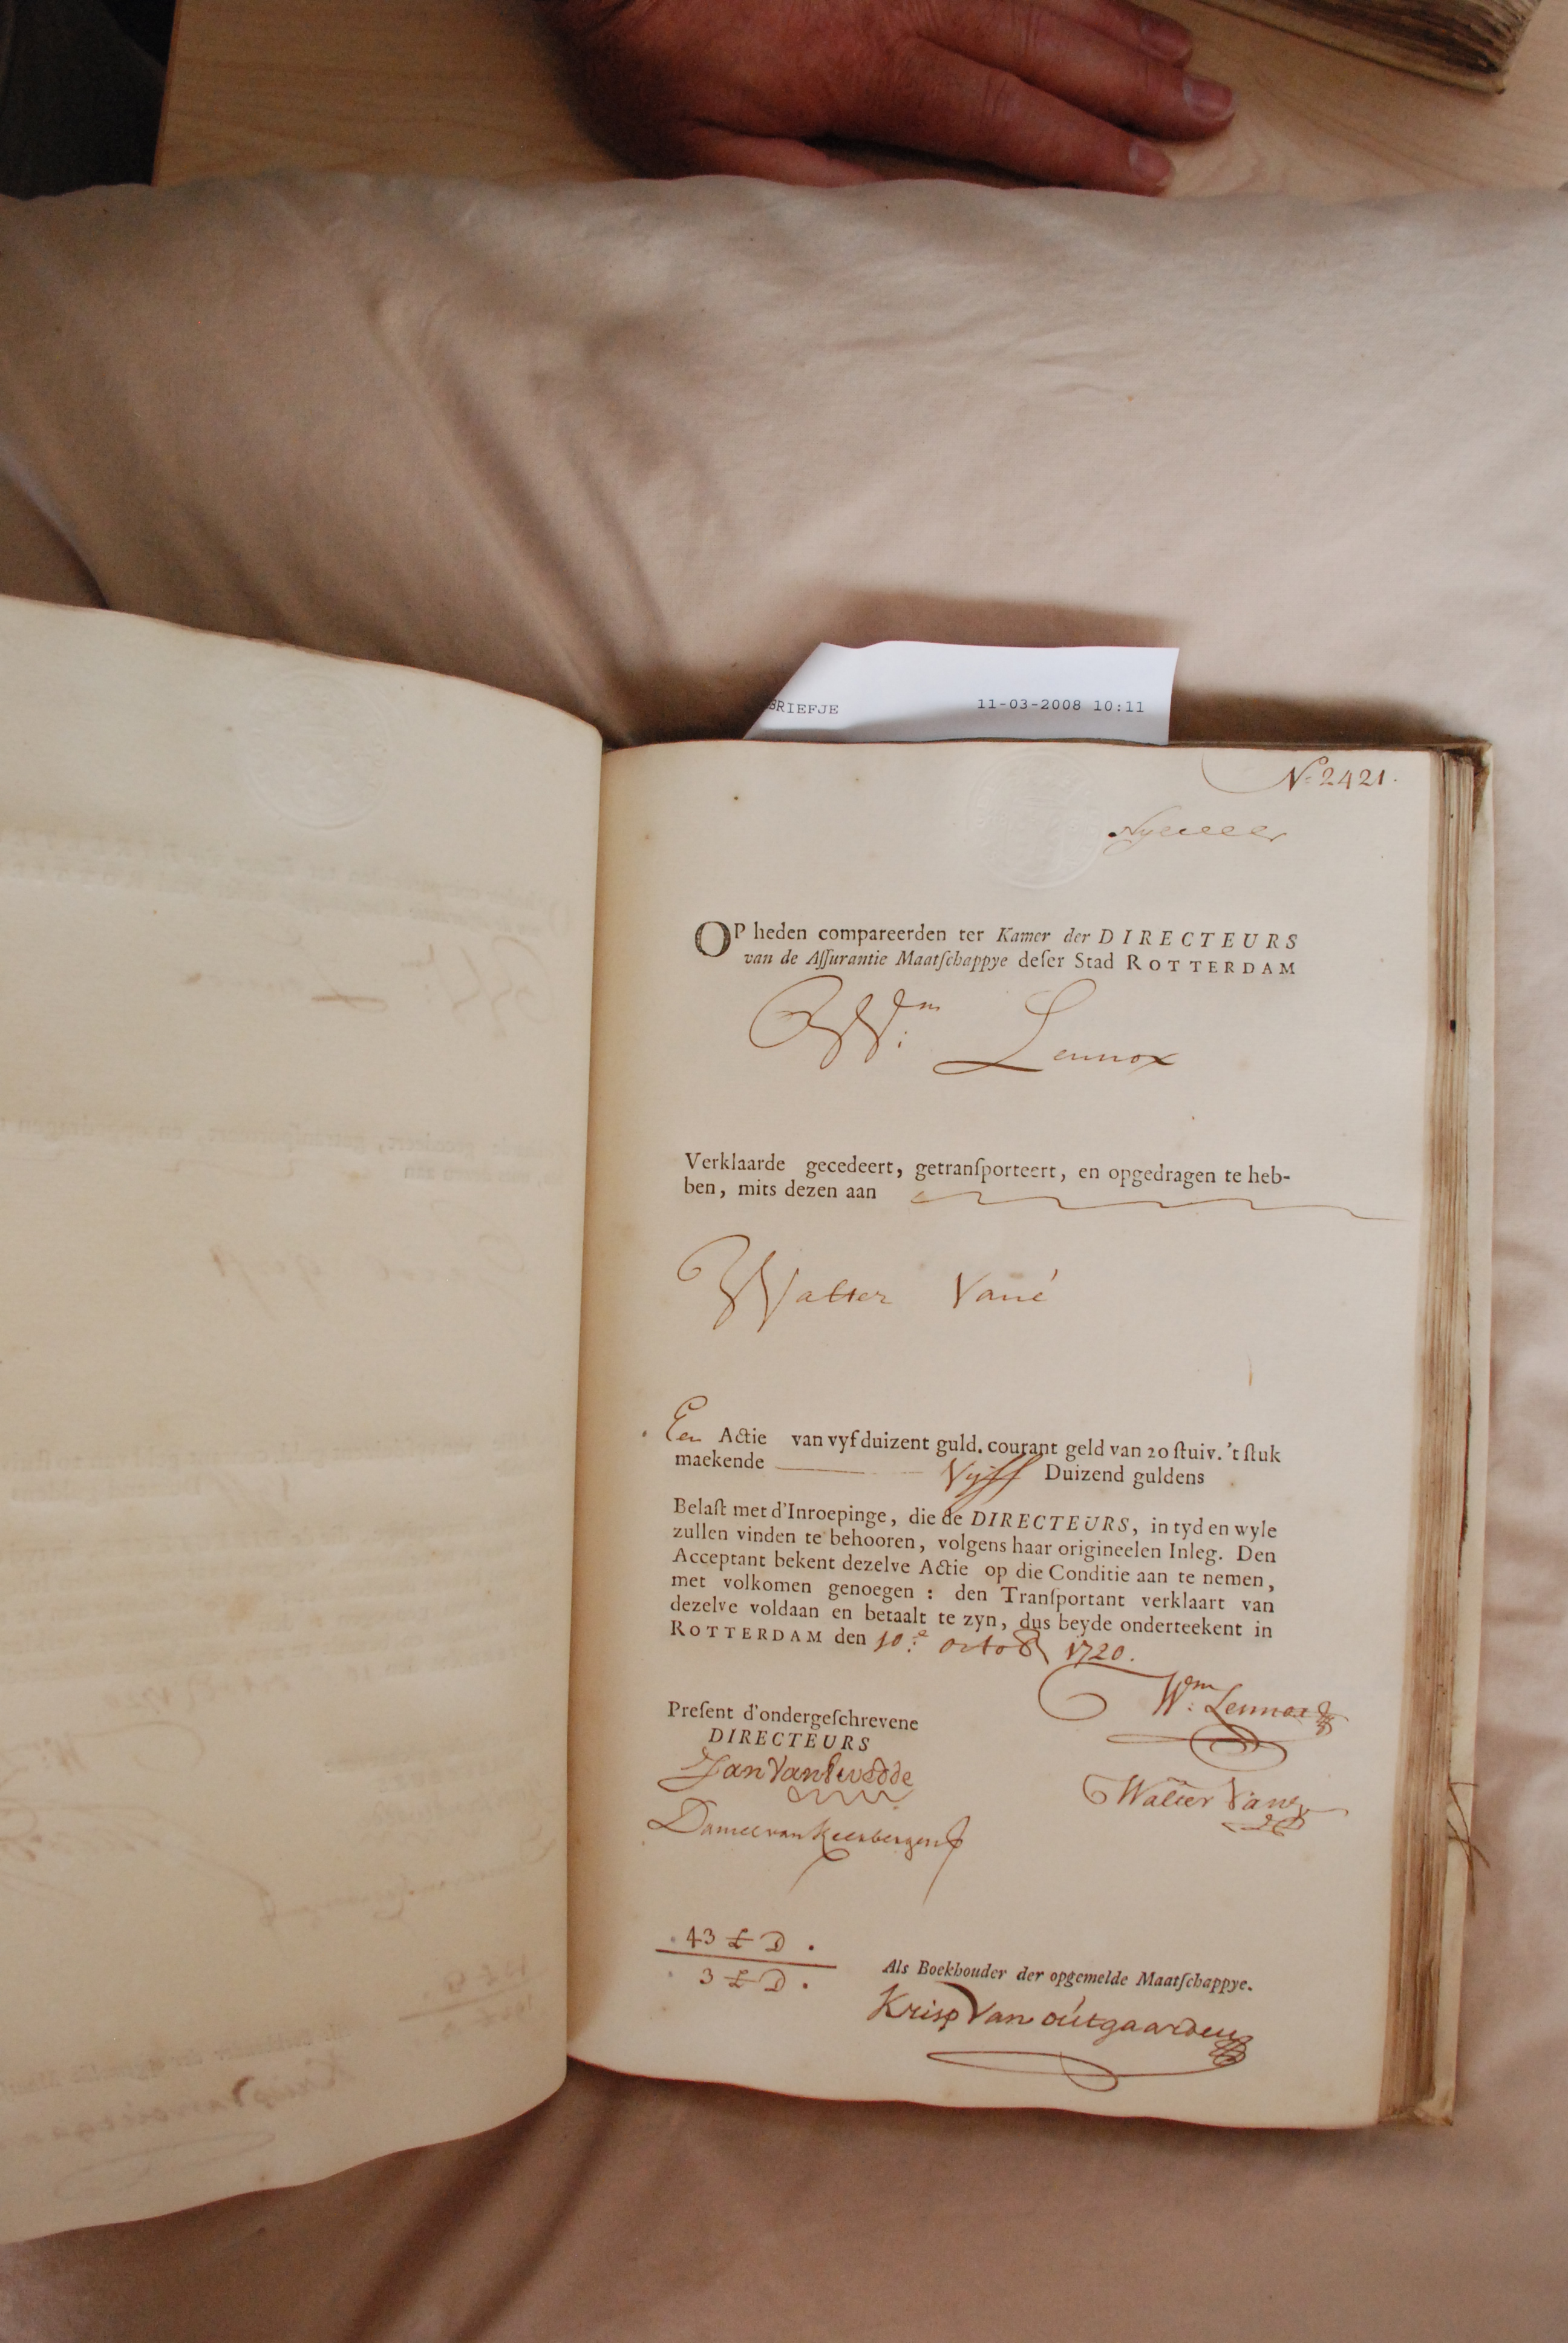 BRIEFJE 11-03-2008 10:11
No 2421.
OP heden compareerden ter Kamer der DIRECTEURS
van de Aſſurantie Maatſchappye deſer Stad ROTTERDAM
Wm: Lennox
Verklaarde gecedeert, getranſporteert, en opgedragen te heb-
ben, mits dezen aan
Walter Vané
Een Actie van vyf duizent guld. courant geld van 20 ſtuiv. 't ſtuk
maekende Vyff Duizend guldens
Belaſt met d'Inroepinge, die de DIRECTEURS, in tyd en wyle
zullen vinden te behooren, volgens haar origineelen Inleg. Den
Acceptant bekent dezelve Actie op die Conditie aan te nemen,
met volkomen genoegen : den Tranſportant verklaart van
dezelve voldaan en betaalt te zyn, dus beyde onderteekent in
ROTTERDAM den 10:e octob 1720.
Wm: Lennox
Preſent d'ondergeſchrevene
DIRECTEURS
Jan Van
Walter Vane
Daniel van Keerbergen
43 £ D.
3 £ D.
Als Boekhouder der opgemelde Maatſchappye.
Krisp Van outgaarden